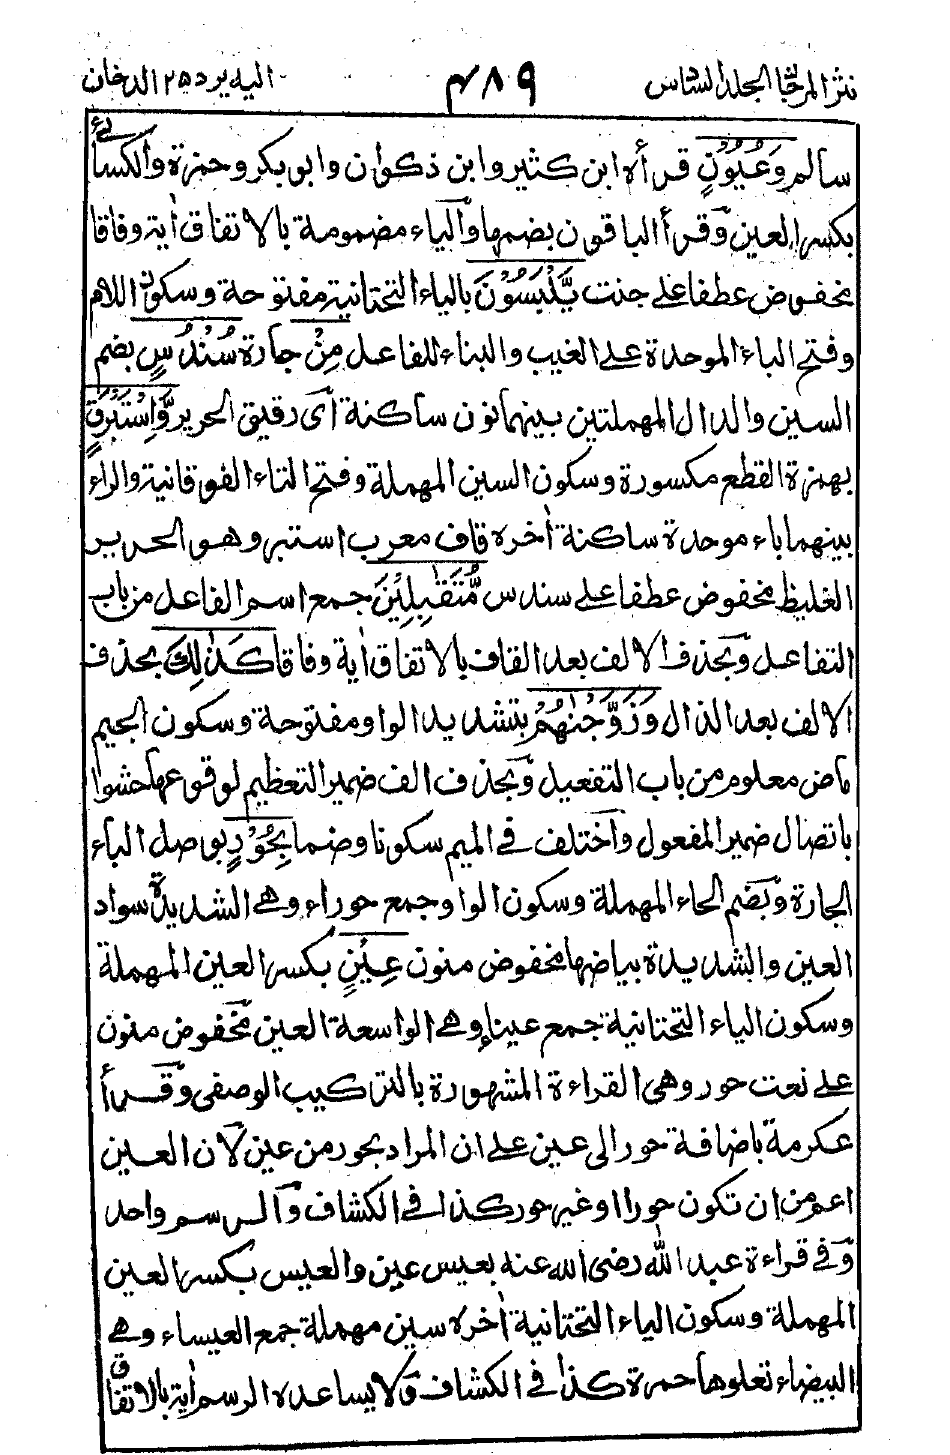 نثر المرجان الجلد السادس ٤٨٩ اليه يرد ٢٥ الدخان
سالم وَعُيُوْنٍ قرأه ابن كثير وابن ذكوان وابو بكر وحمزة والكسائى
بكسر العين وقرأ الباقون بضمها والياء مضمومة بالاتفاق أية وفاقا
مخفوض عطفا على جنت يَّلْبَسُوْنَ بالياء التحتانية مفتوحة وسكون اللام
وفتح الباء الموحدة على الغيب والبناء للفاعل مِنْ جارة سُنْدُسٍ بضم
السين والدال المهملتين بينهما نون ساكنة آى رقيق الحرير وَّاِسْتَبْرَقٍ
بهمزة القطع مكسورة وسكون السين المهملة وفتح التاء الفوقانية والراء
بينهما باء موحدة ساكنة أخره قاف معرب استبر وهو الحرير
الغليظ مخفوض عطفا على سندس مُّتَقٰبِلِيْنَ جمع اسم الفاعل من باب
التفاعل وبحذف الالف بعد القاف بالاتفاق أية وفاقا كَذٰلِكَ بحذف
الالف بعد الذال وَزَوَّجْنٰهُمْ بتشديد الواو مفتوحة وسكون الجيم
ماض معلوم من باب التفعيل وبحذف الف ضمير التعظيم لوقوعها حشوا
باتصال ضمير المفعول واختلف فى الميم سكونا وضما بِحُوْرٍ بوصل الباء
الجارة وبضم الحاء المهملة وسكون الواو جمع حوراء وهى الشديدة سواد
العين والشديدة بياضها مخفوض منون عِيْنٍ بكسر العين المهملة
وسكون الياء التحتانية جمع عيناء وهى الواسعة العين مخفوض منون
على نعت حور وهى القراءة المشهورة بالتركيب الوصفى وقرأ
عكرمة باضافة حور الى عين على ان المراد بحور من عين لان العين
اعم من ان تكون حورا او غير حور كذا فى الكشاف والرسم واحد
وفى قراءة عبد الله رضى الله عنه بعيس عين والعيس بكسر العين
المهملة وسكون الياء التحتانية أخره سين مهملة جمع العيساء وهى
البيضاء تعلوها حمرة كذا فى الكشاف ولا يساعده الرسم أية بالاتفاق